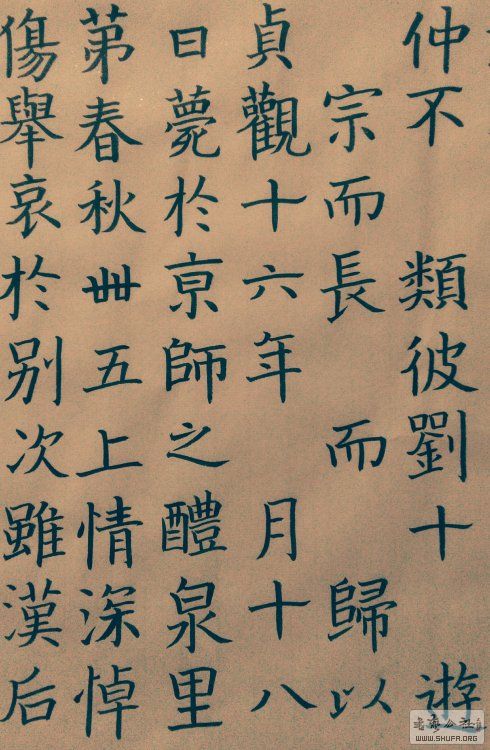 仲不 類彼劉十 遊
宗而長 而 歸以
貞觀十六年 月十八
日薨於京師之醴泉里
第春秋卌五上情深悼
傷舉哀於别次雖漢后
WWW.SHUFA.ORG